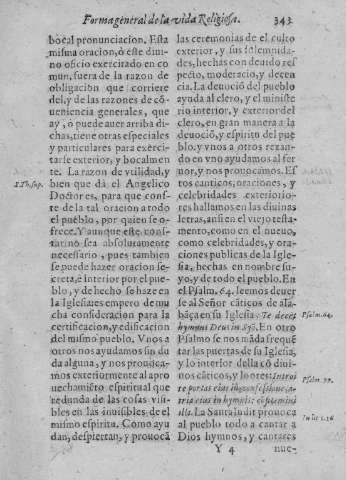 Forma general de la vida Religiosa. 343
bocal pronunciacion. Esta
misma oracion, ó este diui-
no oficio exercitado en co
mun, fuera de la razon de
obligacion que corriere
del, y de las razones de cō-
ueniencia generales, que
ay, ó puede auer arriba di-
chas, tiene otras especiales
y particulares para exerci-
tarse exterior, y bocalmen
te. La razon de vtilidad, y
bien que dá el Angelico
Doctor es, para que cons-
te de la tal oracion a todo
el pueblo, por quien se o-
frece. Y aunque este cons-
tar no sea absolutamente
necessario, pues tambien
se puede hazer oracion se-
creta, é interior por el pue-
blo, y de hecho se haze en
la Iglesia: es empero de mu
cha consideracion para la
certificacion, y edificacion
del mismo pueblo. Vnos a
otros nos ayudamos sin du
da alguna, y nos prouoca-
mos exteriormente al apro
uechamiēto espiritual que
redunda de las cosas visi-
bles en las inuisibles, de el
mismo espiritu. Como ayu
dan, despiertan, y prouocā
las ceremonias de el culto
exterior, y sus solemnida-
des, hechas con deuido res
pecto, moderacio, y decen
cia. La deuociō del pueblo
ayuda al clero, y el ministe
rio interior, y exterior del
clero, en gran manera a la
deuociō, y espiritu del pue
blo, y vnos a otros rezan-
do en vno ayudamos al fer
uor, y nos prouocamos. Es
tos canticos, oraciones, y
celebridades exteriorio-
res hallamos en las diuinas
letras, assi en el viejo testa-
mento, como en el nueuo,
como celebridades, y ora-
ciones publicas de la Igle-
sia, hechas en nombre su-
yo, y de todo el pueblo. En
el Psalm. 64. leemos deuer
se al Señor cāticos de alā-
baçā en su Iglesia: Te decet
hymnus Deus in Syō. En otro
Psalmo se nos māda frequē
tar las puertas de su Iglesia,
y lo interior della cō diui-
nos cāticos, y loores: Introi
te portas eius
tria eius in hymnis:
illi. La Santa Iudit prouoca
al pueblo todo a cantar a
Dios hymnos, y cantares
Y 4 nue-
Psalm. 64.
Psalm. 99.